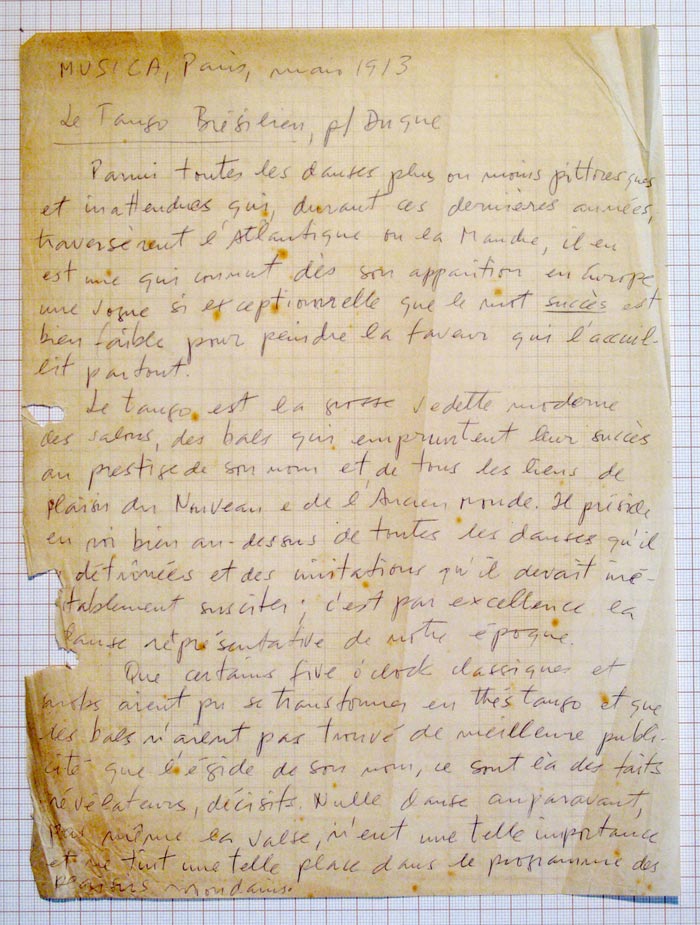 MUSICA, Paris, mars 1913
Le Tango Brésilien, p/ Duque
Parmi toutes les danses plus ou moins pittoresques
et inattendues qui, durant ces dernières années,
traversèrent l'Atlantique ou la Manche, il en
est une qui connut dès son apparition en Europe
une vogue si exceptionnelle que le mot succès est
bien faible pour peindre la faveur qui l'accueil-
lit partout.
Le tango est la grosse vedette moderne
des salons, des bals qui empruntent leur succès
au prestige de son nom et de tous les liens de
plaisir du Nouveau e de l'Ancien monde. Il préside
en roi bien au-dessus de toutes les danses qu'il
détrônées et des imitations qu'il devait iné-
tablement susciter; c'est par excellence la
danse réprésentative de notre époque.
Que certains five o'clock classiques et
snobs aient pu se transformer en thés tango et que
les bals n'aient pas trouvé de meilleure publi-
cité que l'égide de son nom, ce sont là des faits
révélateurs, décisifs. Nulle danse auparavant,
pas même la valse, n'eut une telle importance
et ne tint une telle place dans le programme des
mondains.